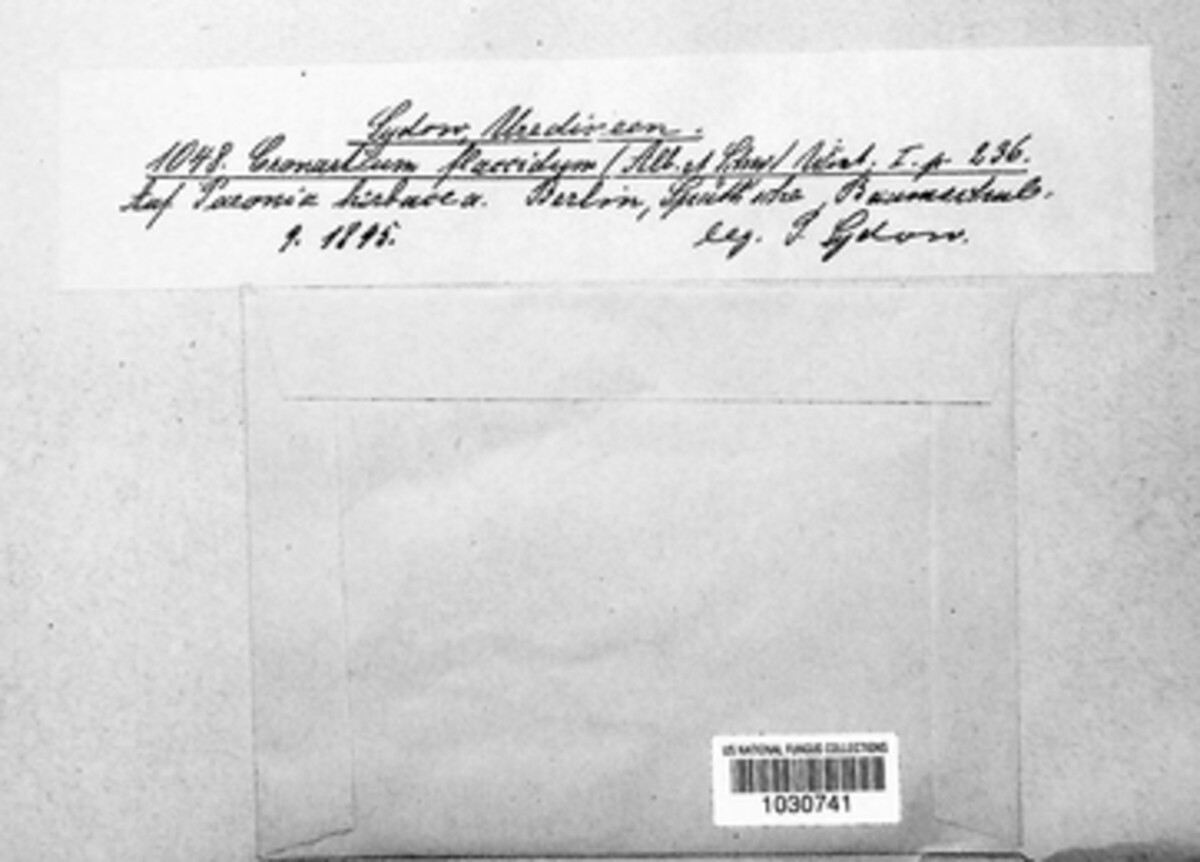 Sydow, Uredineen.
1048. Cronartium flaccidum (Alb. et Schw) Wint. I. p. 236.
Auf Paeonia herbacea. Berlin, Späth'sche Baumschul.
9. 1895. leg. P. Sydow.
US NATIONAL FUNGUS COLLECTIONS
1030741